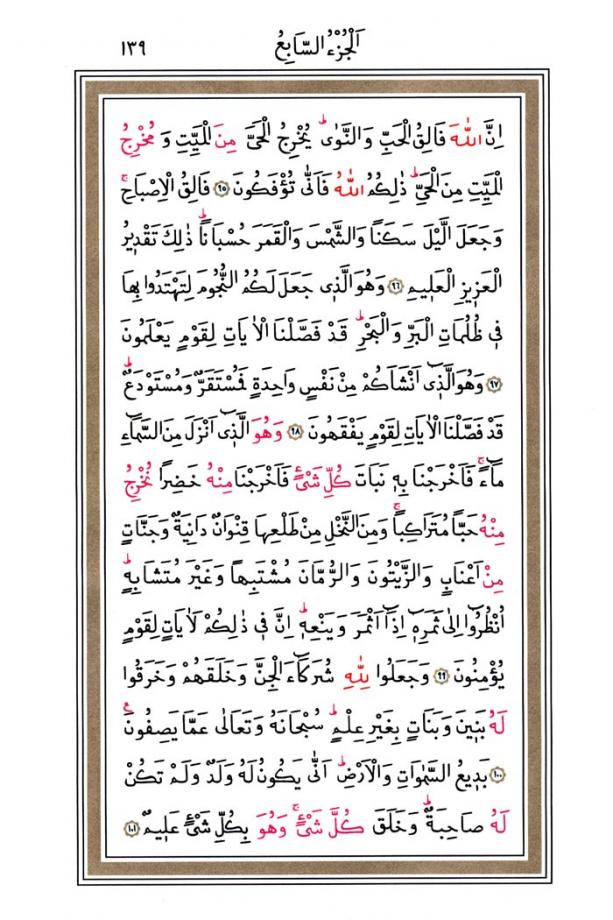 اَلْجُزْءُ السَّابِعُ
١٣٩
اِنَّ اللّٰهَ فَالِقُ الْحَبِّ وَالنَّوٰىۜ يُخْرِجُ الْحَيَّ مِنَ الْمَيِّتِ وَ مُخْرِجُ
الْمَيِّتِ مِنَ الْحَيِّۜ ذٰلِكُمُ اللّٰهُ فَاَنّٰى تُؤْفَكُونَ ﴿٩٥﴾ فَالِقُ الْاِصْبَاحِۚ
وَجَعَلَ الَّيْلَ سَكَنًا وَالشَّمْسَ وَالْقَمَرَ حُسْبَانًاۜ ذٰلِكَ تَقْدِيرُ
الْعَزِيزِ الْعَلِيمِ ﴿٩٦﴾ وَهُوَ الَّذِي جَعَلَ لَكُمُ النُّجُومَ لِتَهْتَدُوا بِهَا
فِي ظُلُمَاتِ الْبَرِّ وَالْبَحْرِۜ قَدْ فَصَّلْنَا الْاٰيَاتِ لِقَوْمٍ يَعْلَمُونَ
﴿٩٧﴾ وَهُوَ الَّذِٓي اَنْشَاَكُمْ مِنْ نَفْسٍ وَاحِدَةٍ فَمُسْتَقَرٌّ وَمُسْتَوْدَعٌۜ
قَدْ فَصَّلْنَا الْاٰيَاتِ لِقَوْمٍ يَفْقَهُونَ ﴿٩٨﴾ وَهُوَ الَّذِٓي اَنْزَلَ مِنَ السَّمَٓاءِ
مَٓاءًۚ فَاَخْرَجْنَا بِهٖ نَبَاتَ كُلِّ شَيْءٍ فَاَخْرَجْنَا مِنْهُ خَضِرًا نُخْرِجُ
مِنْهُ حَبًّا مُتَرَاكِبًاۚ وَمِنَ النَّخْلِ مِنْ طَلْعِهَا قِنْوَانٌ دَانِيَةٌ وَجَنَّاتٍ
مِنْ اَعْنَابٍ وَالزَّيْتُونَ وَالرُّمَّانَ مُشْتَبِهًا وَغَيْرَ مُتَشَابِهٍۜ
اُنْظُرُٓوا اِلٰى ثَمَرِهٖٓ اِذَٓا اَثْمَرَ وَيَنْعِهٖۜ اِنَّ فِي ذٰلِكُمْ لَاٰيَاتٍ لِقَوْمٍ
يُؤْمِنُونَ ﴿٩٩﴾ وَجَعَلُوا لِلّٰهِ شُرَكَٓاءَ الْجِنَّ وَخَلَقَهُمْ وَخَرَقُوا
لَهُ بَنِينَ وَبَنَاتٍ بِغَيْرِ عِلْمٍۜ سُبْحَانَهُ وَتَعَالٰى عَمَّا يَصِفُونَ۟
﴿١٠٠﴾ بَدِيعُ السَّمٰوَاتِ وَالْاَرْضِۜ اَنّٰى يَكُونُ لَهُ وَلَدٌ وَلَمْ تَكُنْ
لَهُ صَاحِبَةٌۜ وَخَلَقَ كُلَّ شَيْءٍۚ وَهُوَ بِكُلِّ شَيْءٍ عَلِيمٌ ﴿١٠١﴾